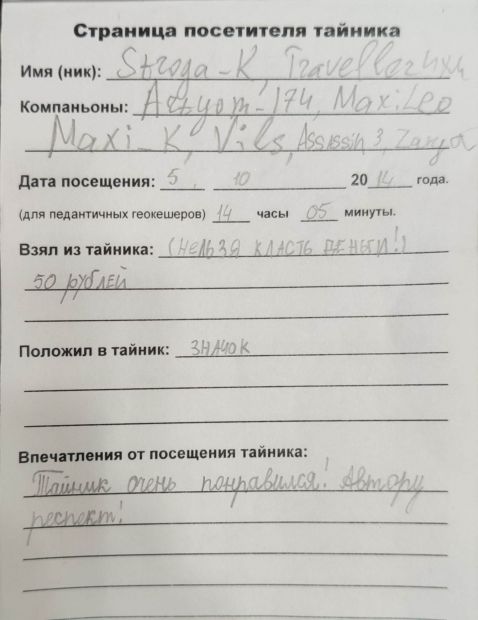 Страница посетителя тайника
Имя (ник): Stroga-K, Traveller4x4
Компаньоны: Artyom-174, Maxi.Leo
Maxi-K, Vils, Assassin 3,
Дата посещения: 5. 10 2014 года.
(для педантичных геокешеров) 14 часы 05 минуты.
Взял из тайника: (НЕЛЬЗЯ КЛАСТЬ ДЕНЬГИ!)
50 рублей
Положил в тайник: ЗНАЧОК
Впечатления от посещения тайника:
Тайник очень понравился! Автору
респект!